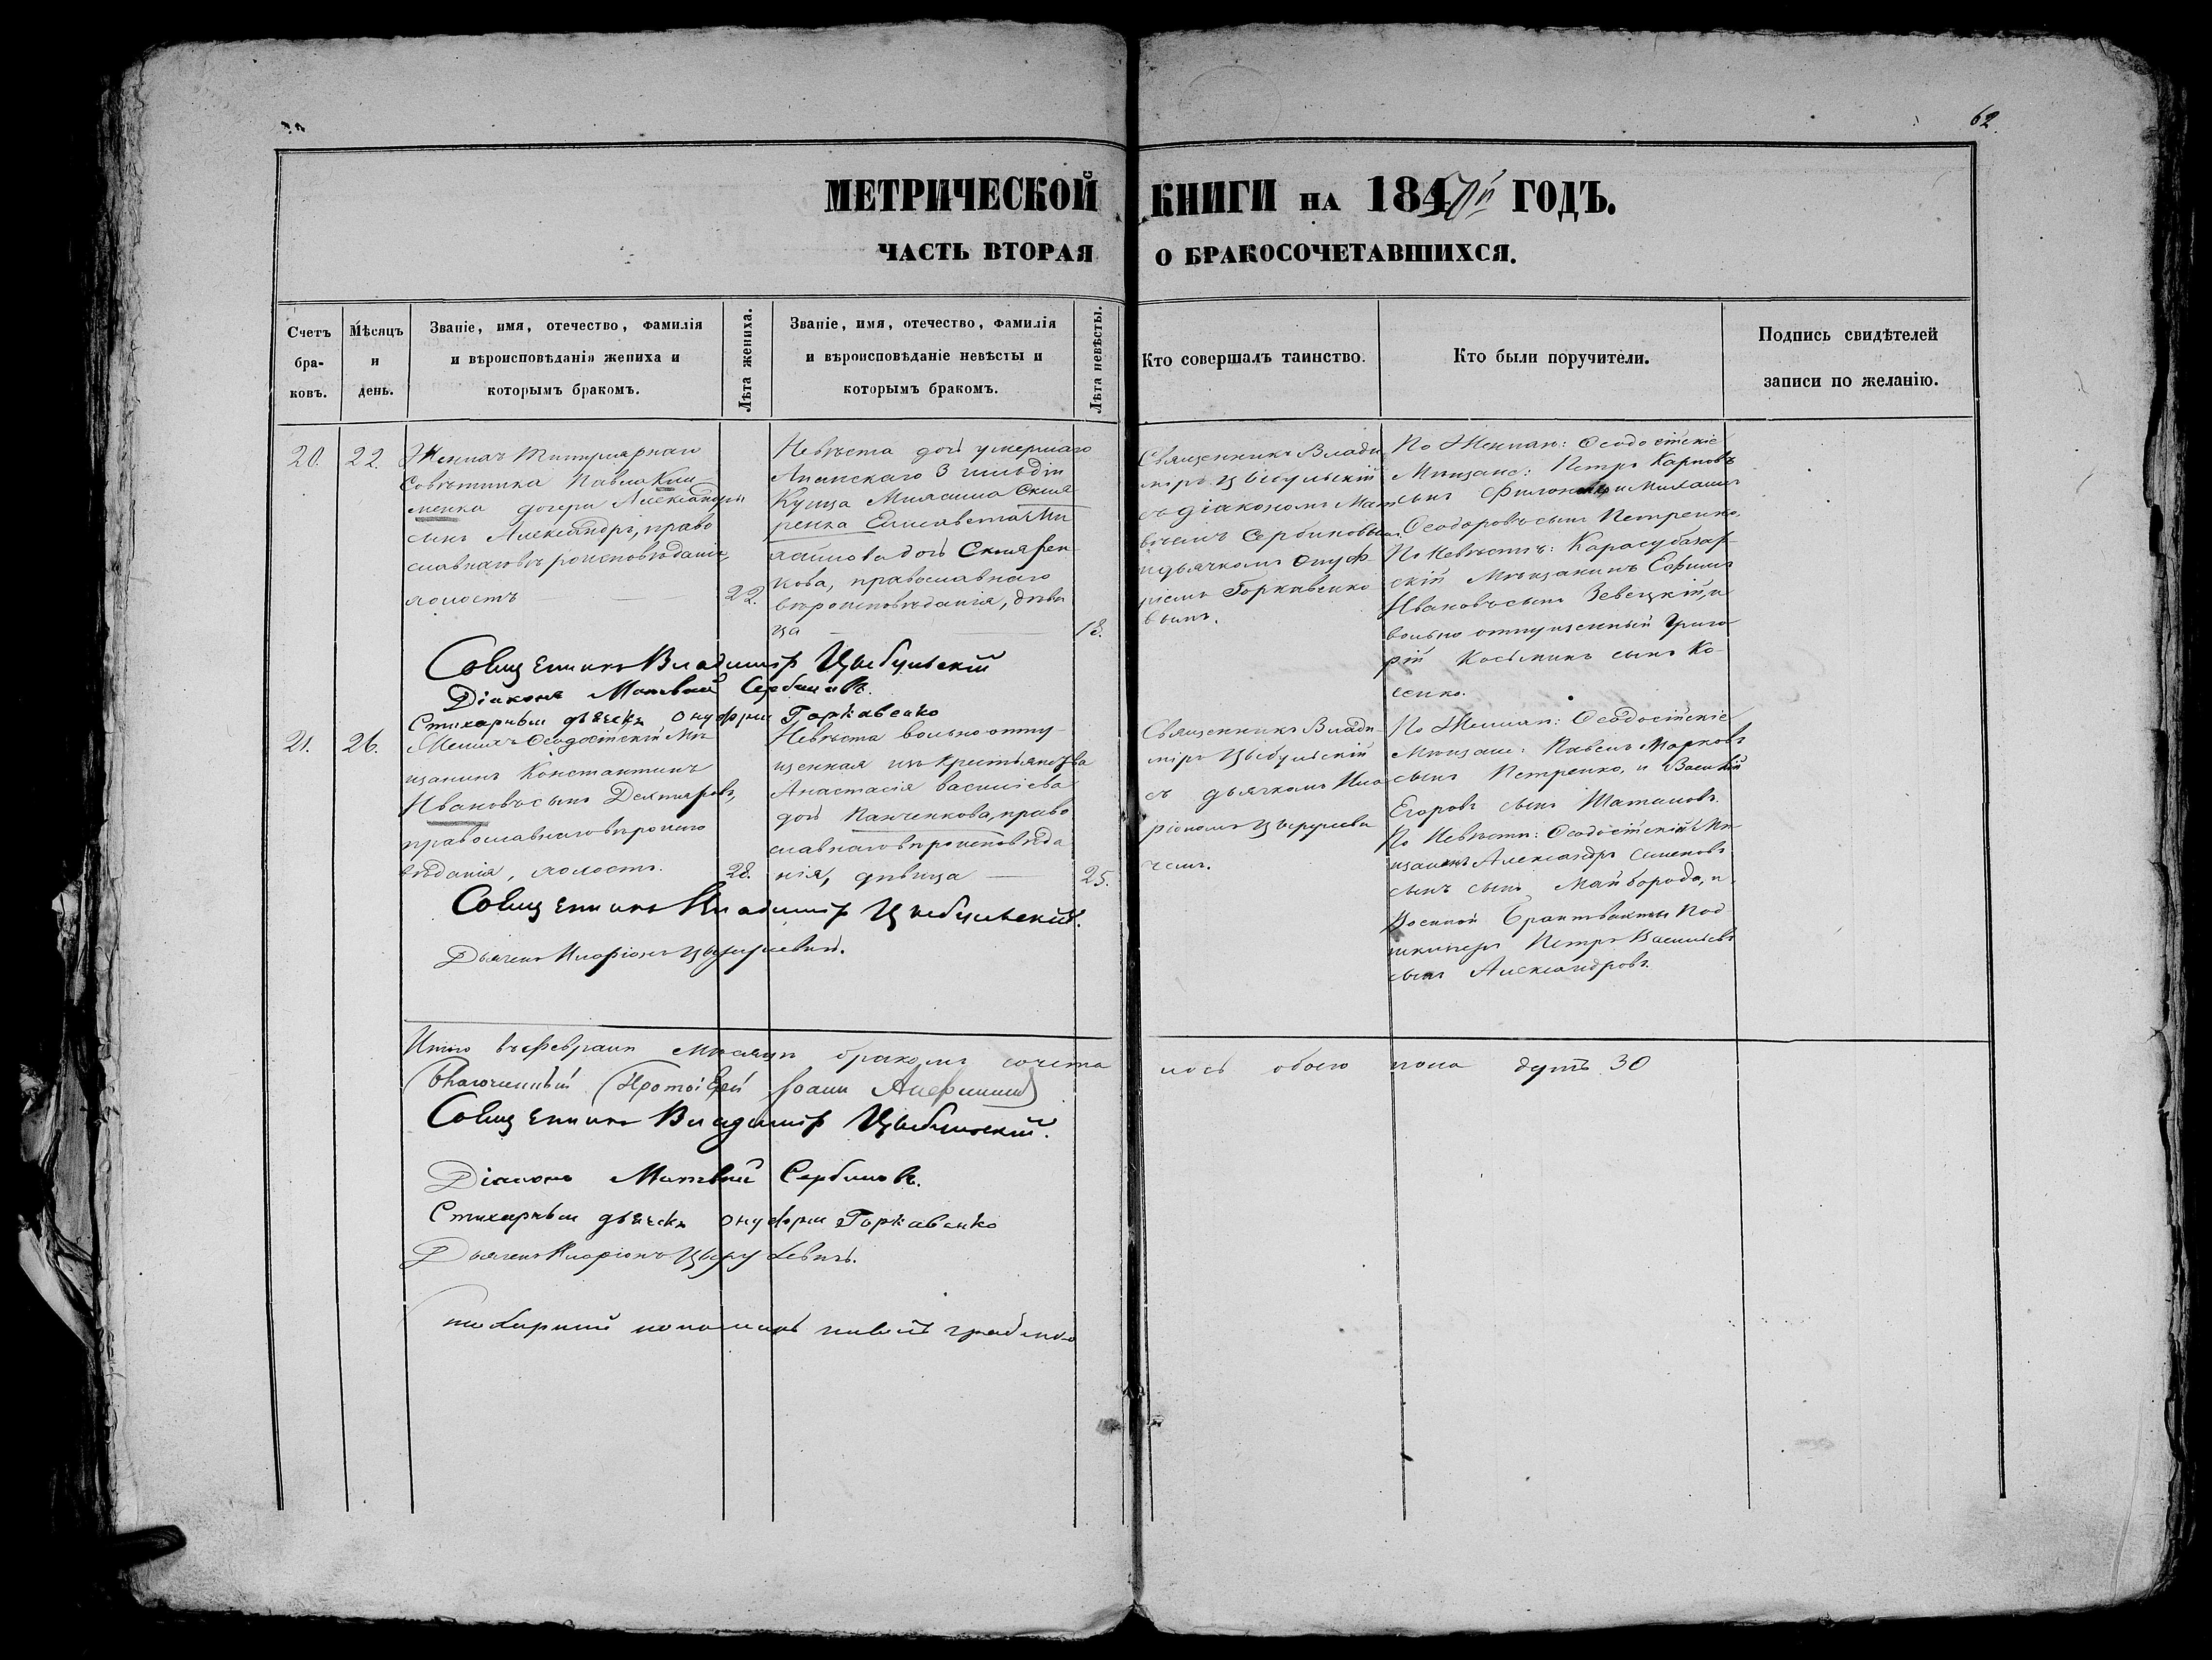 62.
МЕТРИЧЕСКОЙ КНИГИ НА 1850й ГОДЪ.
ЧАСТЬ ВТОРАЯ О БРАКОСОЧЕТАВШИХСЯ.
Счетъ
бра-
ковъ.
Мѣсяцъ
и
день.
Званіе, имя, отечество, фамилія
и вѣроисповѣданія жениха и
которымъ бракомъ.
Лѣта жениха.
Званіе, имя, отечество, фамилія
и вѣроисповѣданіе невѣсты и
которымъ бракомъ.
Лѣта невѣсты.
Кто совершалъ таинство.
Кто были поручители.
Подпись свидѣтелей
записи по желанію.
20.
22.
Женихъ Титулярнаго
Совѣтника Павла Кли
менка дочери Александры
сынъ Александръ, право
славнаго вѣроисповѣданія,
холостъ
22.
Невѣста дочь умершаго
Анапскаго 3 гильдіи
Купца Скля
ренка Елисавета Ми
хайлова дочь Скларен-
кова, православнаго
вѣроисповѣданія, дѣви
ца
18.
Священникъ Влади
міръ Цыбульскій
съ діакономъ Мат
вѣемъ Сербиновымъ
и дьячкомъ Онуф
ріемъ Горкавенко
вымъ.
По Женихѣ: Ѳеодосійскіе
Мѣщане: Петръ Карповъ
сынъ и Михаилъ
Ѳеодоровъ сынъ Петренко.
По Невѣстѣ: Карасубазар-
скій Мѣщанинъ Ефимъ
Ивановъ сынъ Зевецкій, и
вольно отпущенный Григо
рій Косьминъ сынъ Ко-
сенко.
Священникъ Владиміръ Цыбульскій
Діаконъ Матвѣй Сербиновъ.
Стихарный дьячекъ Онуфрій Горкавенко
21.
26.
Женихъ Ѳеодосійскій Мѣ
щанинъ Константинъ
Ивановъ сынъ Дехтяревъ,
православнаго вѣроиспо
вѣданія, холостъ.
28.
Невѣста вольно отпу-
щенная изъ крестьянства
Анастасія Васильева
дочь Панченкова, право
славнаго вѣроисповѣда
нія, дѣвица
25.
Священникъ Влади-
міръ Цыбульскій
съ дьячкомъ Ила
ріономъ Цыруцеви
чемъ.
По Женихѣ: Ѳеодосійскіе
Мѣщане: Павелъ Марковъ
сынъ Петренко, и Василій
Егоровъ сынъ Шаталовъ.
По Невѣстѣ: Ѳеодосійскій Мѣ
щанинъ Александръ Симеоновъ
сынъ сынъ Майборода, и
Военной Брантвахты Под
шкиперъ Петръ Васильевъ
сынъ Александровъ.
Священникъ Владиміръ Цыбульскій.
Дьячекъ Иларіонъ
Итого въ Февралѣ мѣсяцѣ бракомъ сочета лось обоего пола душъ 30
Благочинный Протоіерей Іоаннъ
Священникъ Владиміръ Цыбульскій.
Діаконъ Матвѣй Сербиновъ.
Стихарный дьячекъ Онуфрій Горкавенко
Дьячекъ Иларіонъ
Стихарный пономарь